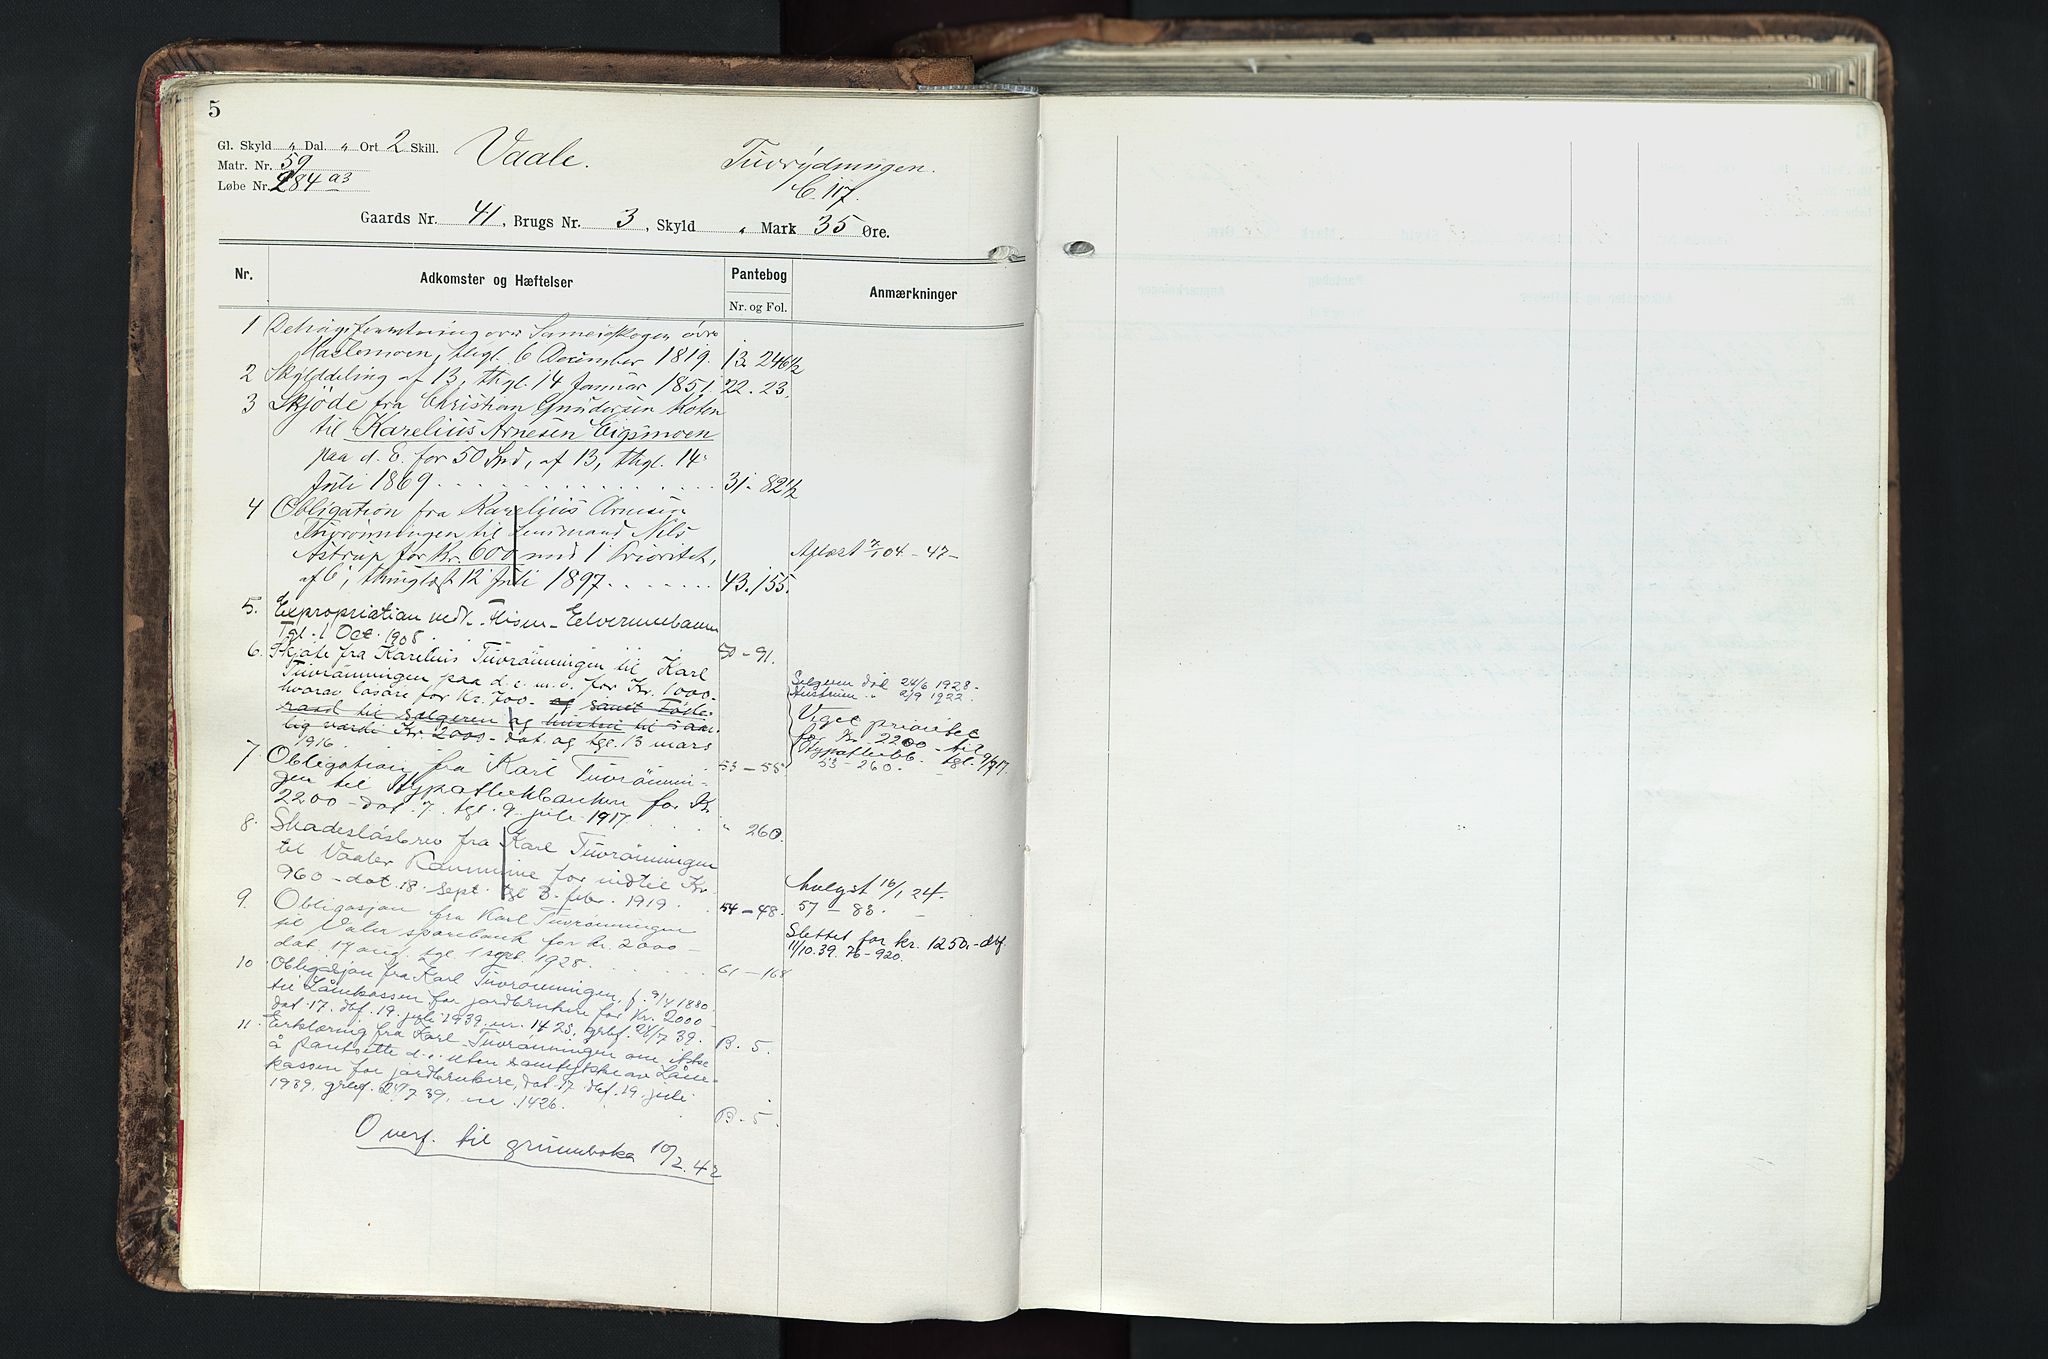 5
Gl. Skyld " Dal. " Ort 2 Skill.
Matr. Nr. 59
Løbe Nr. 284 a3
Vaale.
Tuvrydningen.
C. 117.
Gaards Nr. 41, Brugs Nr. 3, Skyld " Mark 35 Øre.
Nr.
Adkomster og Hæftelser
Pantebog
Nr. og Fol.
Anmærkninger
1 over Sameieskogen øvre
Haslemoen, thgl. 6 December 1819. 13. 246½
2 Skylddeling af 13, thgl. 14 Januar 1851 22. 23.
3 Skjøde fra Christian Gundersen Roten
til Karelius Arnesen Eigsmoen
paa d. E. for 50 Spd, af 13, thgl. 14
Juli 1869 31 - 82½
4 Obligation fra Karelius Arnesen
Tuvrønningen til Lensmand Nils
Astrup for Kr. 600 med 1 Prioritet,
af 6, thinglæst 12 Juli 1897. 43. 155.
Aflæst 7/1 04 - 47 -
5. Expropriation vedk. Flisen - Elverumbanen
Tgl. 1 Oct. 1908. 50 - 91.
6. Skjøte fra Karelius Tuvrønningen til Karl
Tuvrønningen paa d. e. m. v. for Kr. 1000 -
hvorav løsøre for Kr. 700 - samt Føde-
raad til sælgeren og hustru til aar-
lig værdi Kr. 2000 - dat. og tgl. 13 mars
1916. 53 - 55
Selgeren død 24/6 1928 -
Hustruen " 2/9 1922
Viget prioritet
for Kr 2200 - til
Hypothekbk. tgl. 9/7 17.
53 - 260.
7. Obligation fra Karl Tuvrønnin-
gen til Hypothekbanken for Kr.
2200 - dat. 7. tgl. 9. juli 1917. " 260.
8. Skadesløsbrev fra Karl Tuvrønningen
til Vaaler Kommune for indtil Kr.
960 - dat. 18. sept. tgl 3. febr. 1919. 54 - 48.
Avlyst 16/1 24.
57 - 83.
9. Obligasjon fra Karl Tuvrønningen
til Våler sparebank for kr. 2000 -
dat. 17 aug. tgl. 1 sept. 1928. 61 - 168
Slettet for kr. 1250.- dbf.
11/10.39. 76 - 920.
10 Obligasjon fra Karl Tuvrønningen, f. 9/4 1880
til Lånekassen for jordbrukere for Kr. 2000 -
dat. 17. dbf. 19. juli 1939. nr. 1425, grbf. 24/7 39. B. 5.
11. Erklæring fra Karl Tuvrønningen om ikke
å pantsette d. e. uten samtykke av Låne-
kassen for jordbrukere, dat. 17. dbf. 19. juli
1939, grbf. 24/7 39. nr. 1426. B. 5.
Overf. til grunnboka 10/2. 42